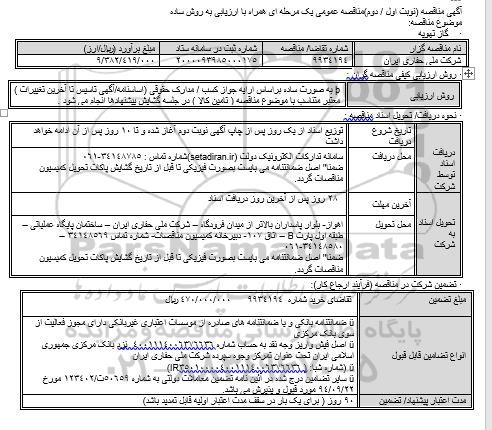 آگهی مناقصه (نوبت اول / دوم)مناقصه عمومی یک مرحله ای همراه با ارزیابی به روش ساده
موضوع مناقصه:
گاز تهویه
نام مناقصه گزار
شماره تقاضا/ مناقصه
شماره ثبت در سامانه ستاد
مبلغ برآورد (ریال/ارز)
شرکت ملی حفاری ایران
۹۹۳۴۱۹۴
۲۰۰۰۰۹۳۹۸۵۰۰۰۱۷۵
۹/۳۸۲/۴۱۹/۰۰۰
روش ارزیابی کیفی مناقصه گران:
روش ارزیابی
þ به صورت ساده براساس ارایه جواز کسب / مدارک حقوقی (اساسنامه/آگهی تاسیس تا آخرین تغییرات )
معتبر متناسب با موضوع مناقصه ( تامین کالا ) در جلسه گشایش پیشنهادها انجام می شود .
نحوه دریافت/ تحویل اسناد مناقصه :
دریافت اسناد توسط شرکت
تاریخ شروع
توزیع اسناد از یک روز پس از چاپ آگهی نوبت دوم آغاز شده و تا ۱۰ روز پس از آن ادامه خواهد
داشت
محل دریافت
سامانه تدارکات الکترونیک دولت (setadiran.ir)شماره تماس : ۳۴۱۴۸۷۸۵-۰۶۱
ضمنا" اصل ضمانتنامه می بایست بصورت فیزیکی تا قبل از تاریخ گشایش پاکات تحویل کمیسیون
مناقصات گردد.
تحویل اسناد به شرکت
آخرین مهلت
۲۸ روز پس از آخرین روز دریافت اسناد
محل تحویل
اهواز- بلوار پاسداران بالاتر از میدان فرودگاه – شرکت ملی حفاری ایران – ساختمان پایگاه عملیاتی –
طبقه اول پارت B – اتاق ۱۰۷- دبیرخانه کمیسیون مناقصات- شماره تماس ۳۴۱۴۸۵۶۹ –
۳۴۱۴۸۵۸۰-۰۶۱
ضمنا" اصل ضمانتنامه می بایست بصورت فیزیکی تا قبل از تاریخ گشایش پاکات تحویل کمیسیون
مناقصات گردد.
تضمین شرکت در مناقصه (فرآیند ارجاع کار):
مبلغ تضمین
تقاضای خرید شماره ۹۹۳۴۱۹۴ ۴۷۰/۰۰۰/۰۰۰ ریال
انواع تضامین قابل قبول
ü ضمانتنامه بانکی و یا ضمانتنامه های صادره از موسسات اعتباری غیربانکی دارای مجوز فعالیت از
سوی بانک مرکزی
ü اصل فیش واریز وجه نقد به حساب شماره ۴۰۰۱۱۱۴۰۰۶۳۷۶۶۳۶ نزد بانک مرکزی جمهوری
اسلامی ایران تحت عنوان تمرکز وجوه سپرده شرکت ملی حفاری ایران
ü سایر تضامین درج شده در آئین نامه تضمین معاملات دولتی به شماره ۵۰۶۵۹ت/۱۲۳۴۰۲ مورخ
۹۴/۰۹/۲۲ مورد قبول و پذیرش می باشد.
مدت اعتبار پیشنهاد/ تضمین
۹۰ روز ( برای یک بار در سقف مدت اعتبار اولیه قابل تمدید باشد)